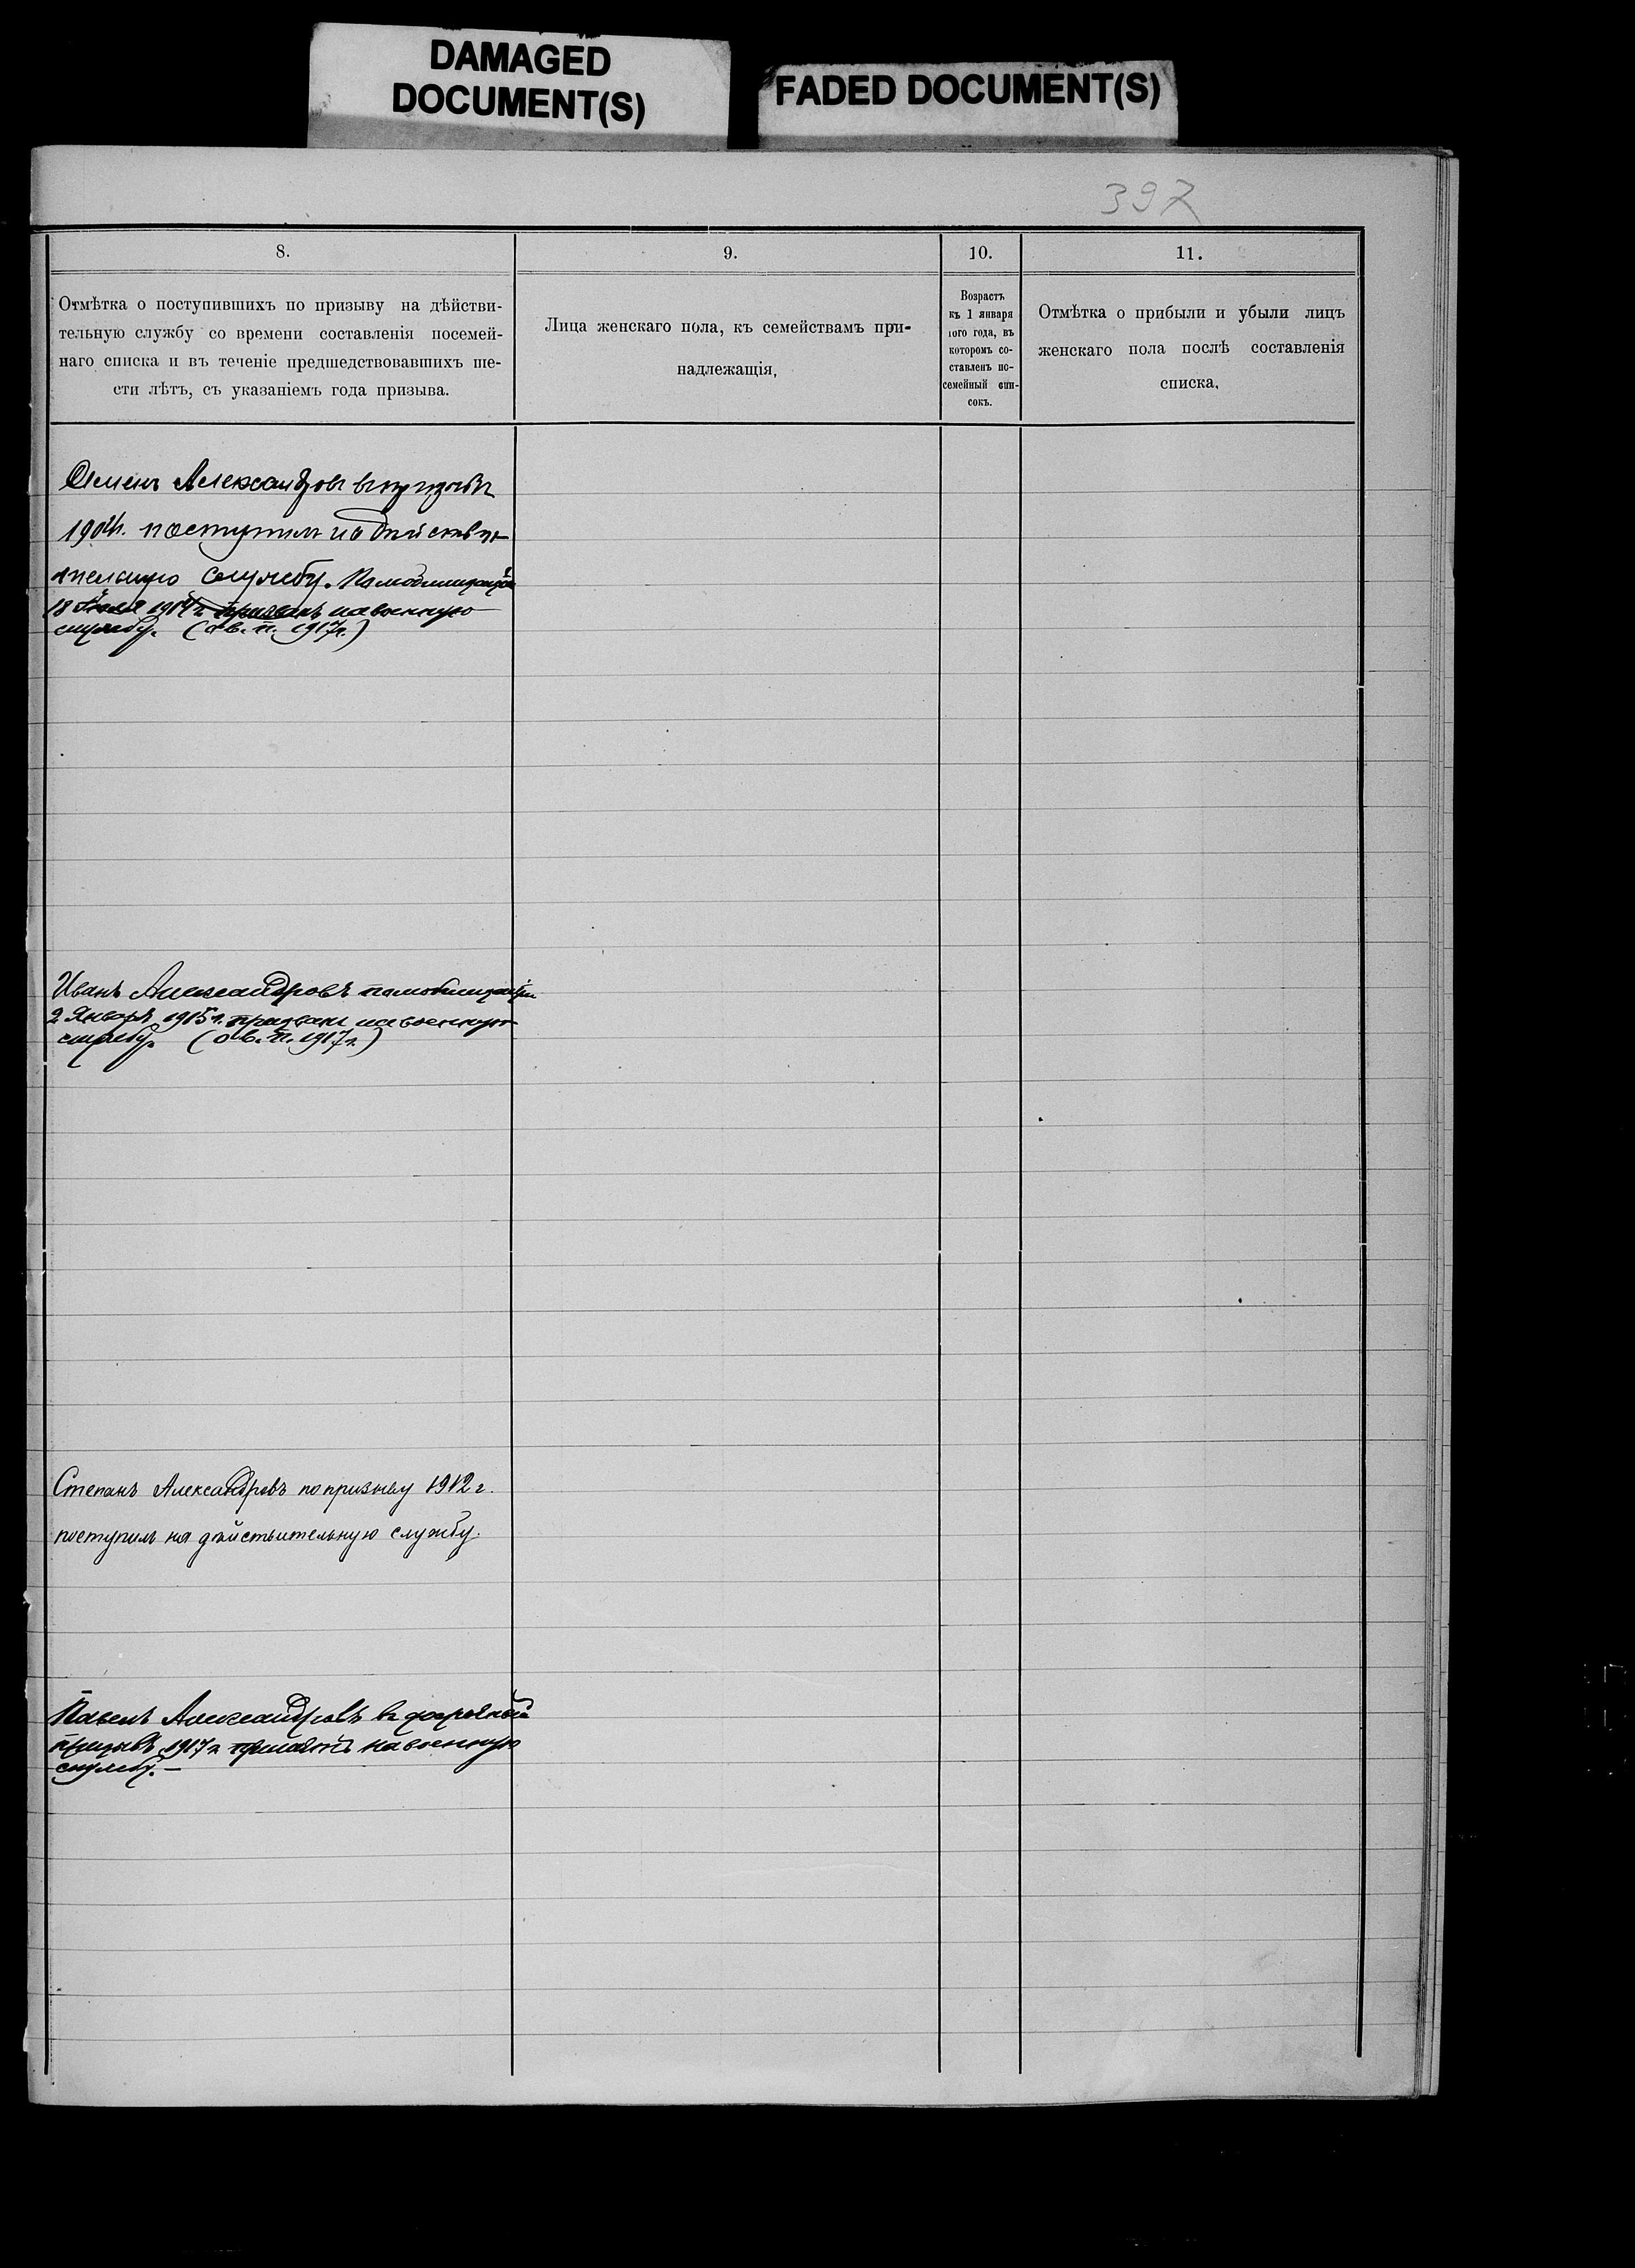 DAMAGED
DOCUMENT(S)
FADED DOCUMENT(S)
397
8.
9.
10.
11.
Отмѣтка о поступившихъ по призыву на дѣйстви-
тельную службу со времени составленія посемей-
наго списка и въ теченіе предшедствовавшихъ ше-
сти лѣтъ, съ указаніемъ года призыва.
Лица женскаго пола, къ семействамъ при-
надлежащія,
Возрастъ
къ 1 января
того года, въ
которомъ со-
ставленъ по-
семейный спи-
сокъ.
Отмѣтка о прибыли и убыли лицъ
женскаго пола послѣ составленія
списка.
Семенъ Александровъ въ призывъ
1904г. поступилъ на дѣйстви-
тельную службу. По мобилизаціи
18 Іюля 1914 г. призванъ на военную
службу. (о в. п. 1917г.)
Иванъ Александровъ по мобилизаціи
2 Января 1915 г. призванъ на военную
службу. (о в. п. 1917 г.)
Степанъ Александровъ по призыву 1912 г.
поступилъ на дѣйствительную службу.
Павелъ Александровъ въ досрочный
призывъ 1917 г. принятъ на военную
службу. —